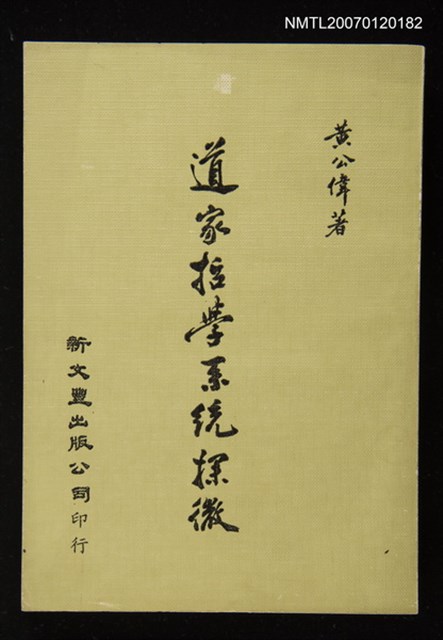 NMTL20070120182
黃公偉著
道家哲學系統探微
新文豐出版公司印行